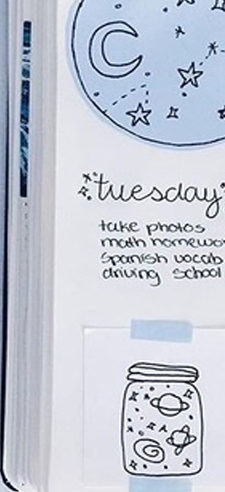 tuesday
take photos
math homewo
Spanish vocab
driving school